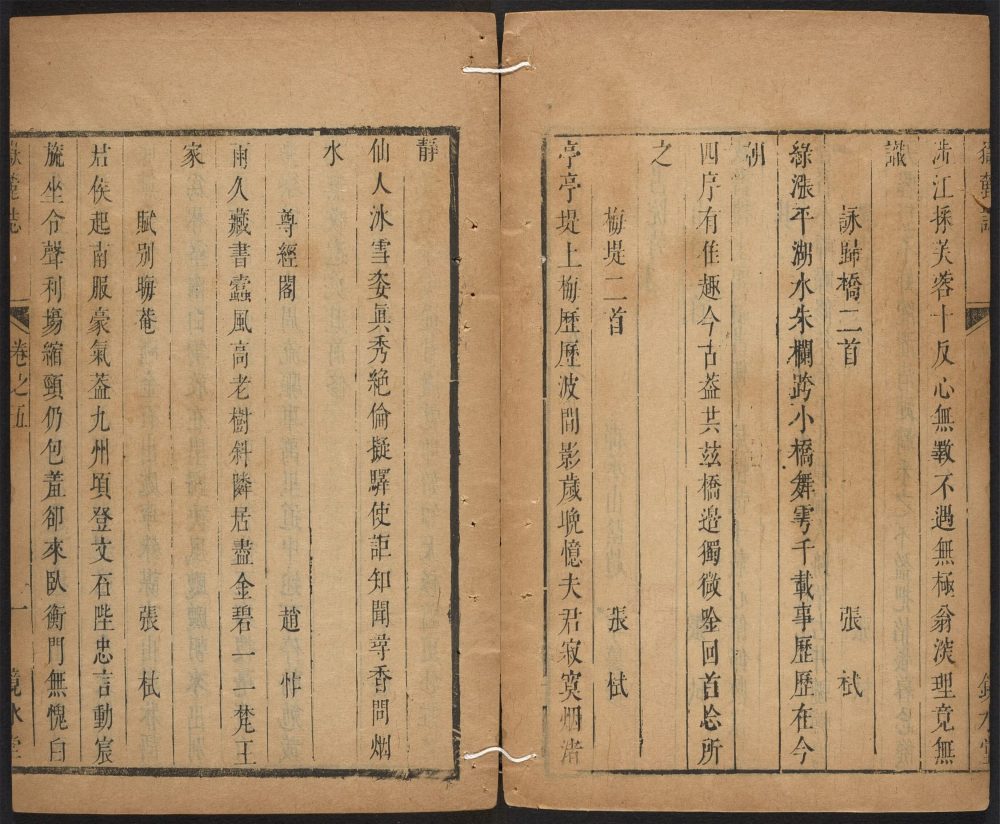 涉江採芙蓉十反心無斁不遇無極翁深理竟無
識
詠歸橋二首 張栻
綠漲平湖水朱欄跨小橋舞雩千載事歷歷在今
朝
四序有佳趣今古蓋共茲橋邊獨微吟回首忩所
之
梅堤二首 張栻
亭亭堤上梅歷歷波間影歲晚憶夫君寂寞烟渚
靜
仙人冰雪姿眞秀絶倫擬驛使詎知聞尋香問烟
水
尊經閣 趙忭
雨久藏書蠹風高老樹斜隣居盡金碧一一梵王
家
賦別晦菴 張栻
君侯起南服豪氣葢九州頃登文石陛忠言動宸
旒坐令聲利塲縮頸仍包羞卻來臥衡門無愧白
嶽麓誌 卷之五 一 鏡水堂